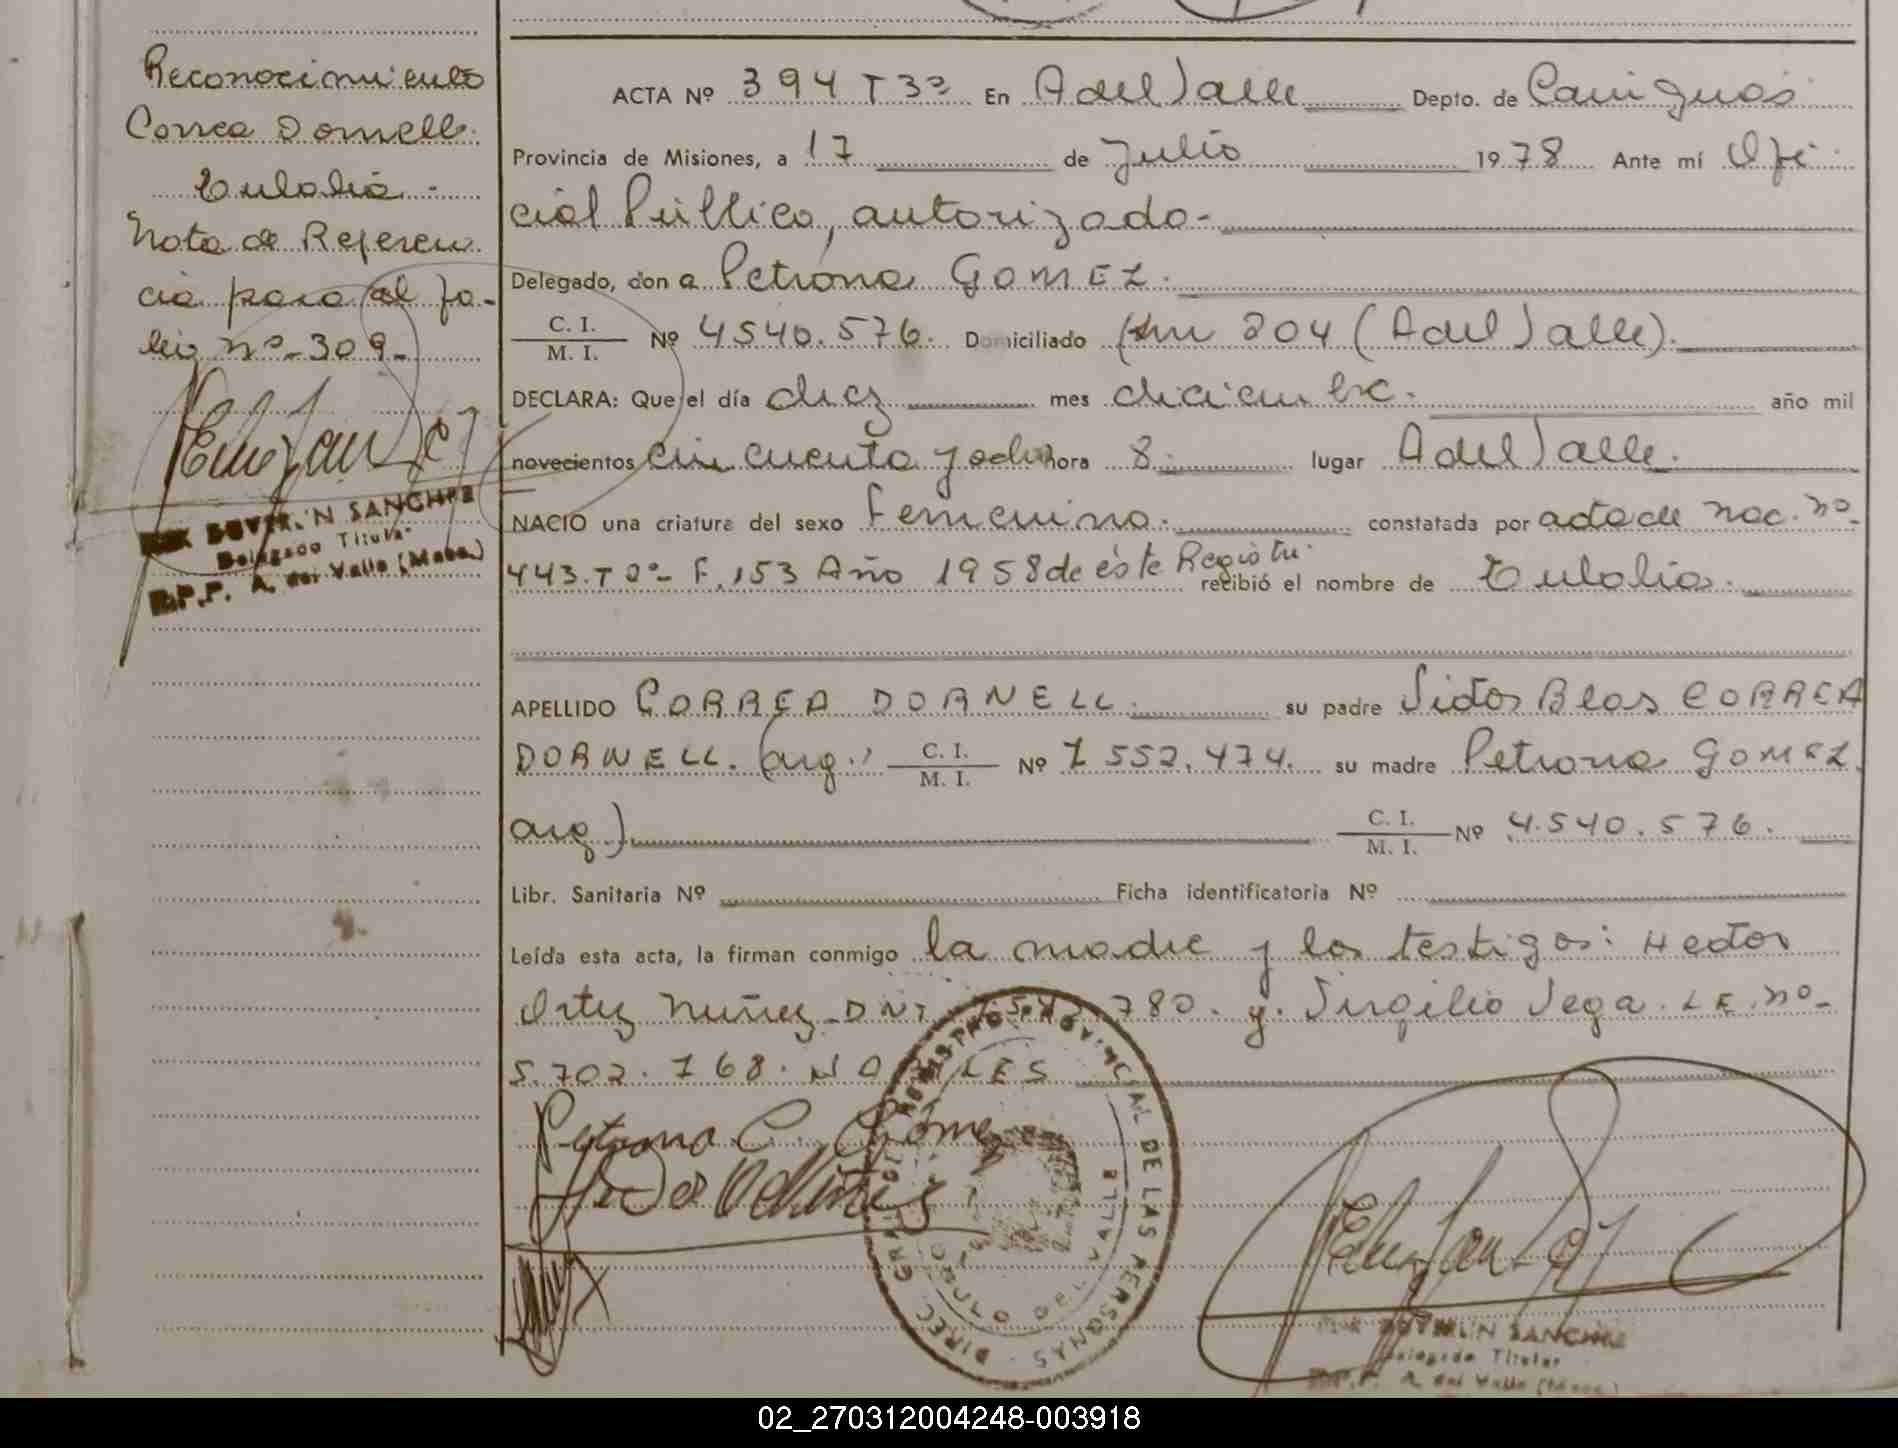 Reconocimiento
Correa Dornell.
Eulalia.-
Nota de Referen
cia para al fo-
lio nº-309-
SANCHEZ
Delegado Titular
R.P.P. A. del Valle (Mnes.)
ACTA Nº 394 T3º En A del Valle Depto. de Cainguás
Provincia de Misiones, a 17 de Julio 1978 Ante mí Ofi
cial Público, autorizado-
Delegado, don a Petrona GOMEZ.
C. I. / M. I. Nº 4540.576. Domiciliado Km 204 (A del Valle).
DECLARA: Que el día diez mes diciembre. año mil
novecientos cincuenta y ocho hora 8. lugar A del Valle.
NACIO una criatura del sexo Femenino. constatada por acta de nac. nº
443. T 2º- F. 153 Año 1958 de éste Registro. recibió el nombre de Eulalia.
APELLIDO CORREA DORNELL. su padre Victor Blas CORREA
DORNELL. (arg.) C. I. / M. I. Nº 7 552.474. su madre Petrona GOMEZ.
arg.) C. I. / M. I. Nº 4.540.576.
Libr. Sanitaria Nº Ficha identificatoria Nº
Leída esta acta, la firman conmigo la madre y los testigos: Hector
Ortiz Nuñez- DNI 780. y. Virgilio Vega. LE. nº-
5.702.768.
Petrona C. Gómez
DIREC. GRAL. REGISTRO PROVINCIAL DE LAS PERSONAS
DEL VALLE
SANCHEZ
Delegado Titular
R.P.P. A. del Valle (Mnes.)
02_270312004248-003918